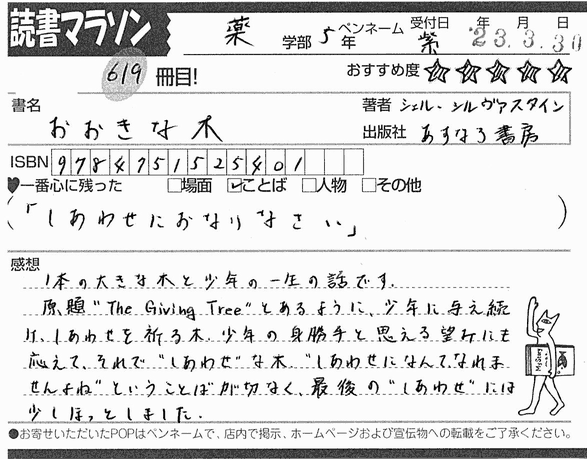 読書マラソン
薬 学部 5 年 ペンネーム 紫 受付日 年 月 日 '23.3.30
619 冊目! おすすめ度 ☆☆☆☆☆
書名 おおきな木
著者 シェル・シルヴァスタイン
出版社 あすなろ書房
ISBN 9784751525401
♥一番心に残った □場面 ☑ことば □人物 □その他
(「しあわせにおなりなさい」)
感想
1本の大きな木と少年の一生の話です.
原題"The Giving Tree"とあるように、少年に与え続
け、しあわせを祈る木. 少年の身勝手と思える望みにも
応えて、それで"しあわせ"な木. "しあわせになんてなれま
せんよね"ということばが切なく、最後の"しあわせ"には
少しほっとしました.
My Story
●お寄せいただいたPOPはペンネームで、店内で掲示、ホームページおよび宣伝物への転載をご了承ください。